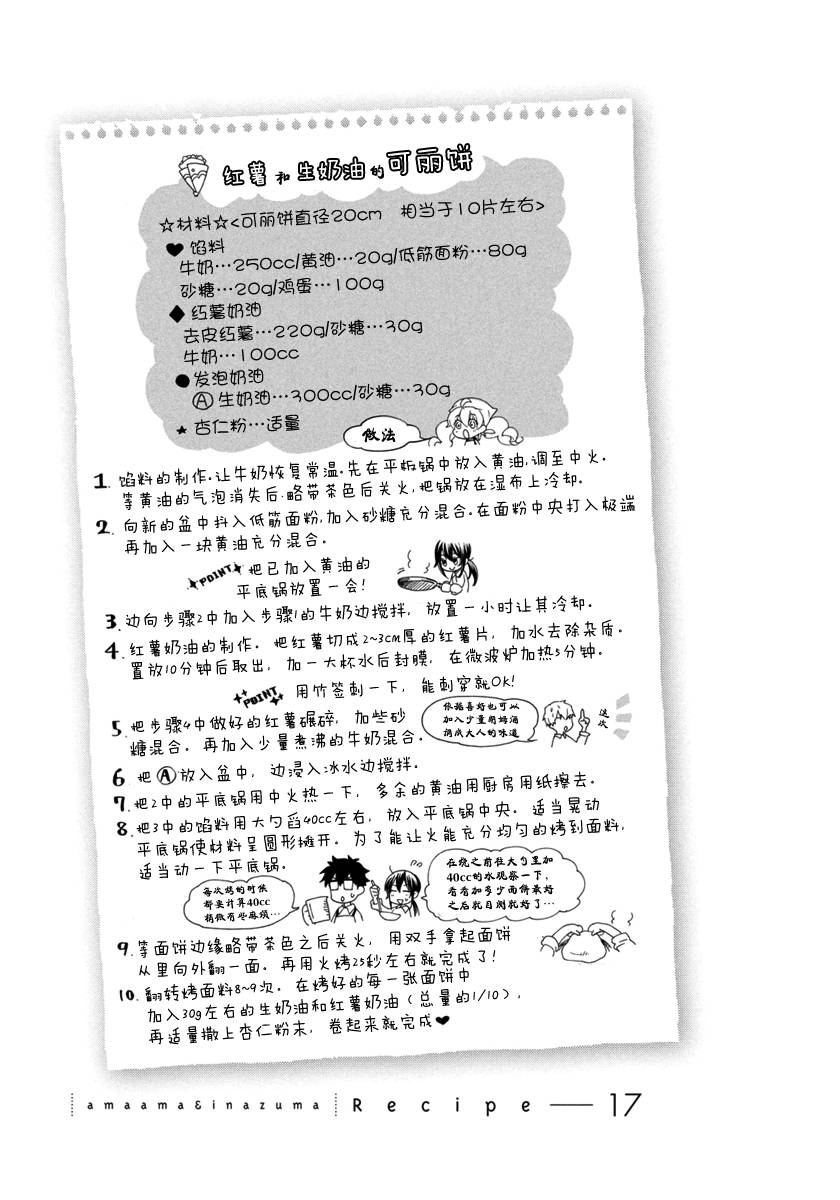 红薯和生奶油的可丽饼
☆材料☆<可丽饼直径20cm 相当于10片左右>
♥馅料
牛奶…250cc/黄油…20g/低筋面粉…80g
砂糖…20g/鸡蛋…100g
◆红薯奶油
去皮红薯…220g/砂糖…30g
牛奶…100cc
●发泡奶油
Ⓐ生奶油…300cc/砂糖…30g
★杏仁粉…适量
做法
1.馅料的制作.让牛奶恢复常温.先在平板锅中放入黄油,调至中火.
等黄油的气泡消失后.略带茶色后关火,把锅放在湿布上冷却.
2.向新的盆中抖入低筋面粉,加入砂糖充分混合.在面粉中央打入极端
再加入一块黄油充分混合。
POINT 把已加入黄油的
平底锅放置一会!
3.边向步骤2中加入步骤1的牛奶边搅拌, 放置一小时让其冷却.
4.红薯奶油的制作. 把红薯切成2~3cm厚的红薯片, 加水去除杂质.
置放10分钟后取出, 加一大杯水后封膜, 在微波炉加热5分钟.
POINT 用竹签刺一下, 能刺穿就OK!
5.把步骤4中做好的红薯碾碎, 加些砂
糖混合. 再加入少量煮沸的牛奶混合.
依据喜好也可以
加入少量朗姆酒
调成大人的味道
这次
6.把Ⓐ放入盆中, 边浸入冰水边搅拌.
7.把2中的平底锅用中火热一下, 多余的黄油用厨房用纸擦去.
8.把3中的馅料用大勺舀40cc左右, 放入平底锅中央. 适当晃动
平底锅使材料呈圆形摊开. 为了能让火能充分均匀的烤到面料,
适当动一下平底锅.
每次烤的时候
都要计算40cc
稍微有些麻烦…
在烧之前往大勺里加
40cc的水观察一下,
看看加多少面饼最好
之后就目测就好了…
9.等面饼边缘略带茶色之后关火, 用双手拿起面饼
从里向外翻一面. 再用火烤25秒左右就完成了!
10.翻转烤面料8~9次. 在烤好的每一张面饼中
加入30g左右的生奶油和红薯奶油(总量的1/10),
再适量撒上杏仁粉末, 卷起来就完成♥
amaama&inazuma Recipe — 17